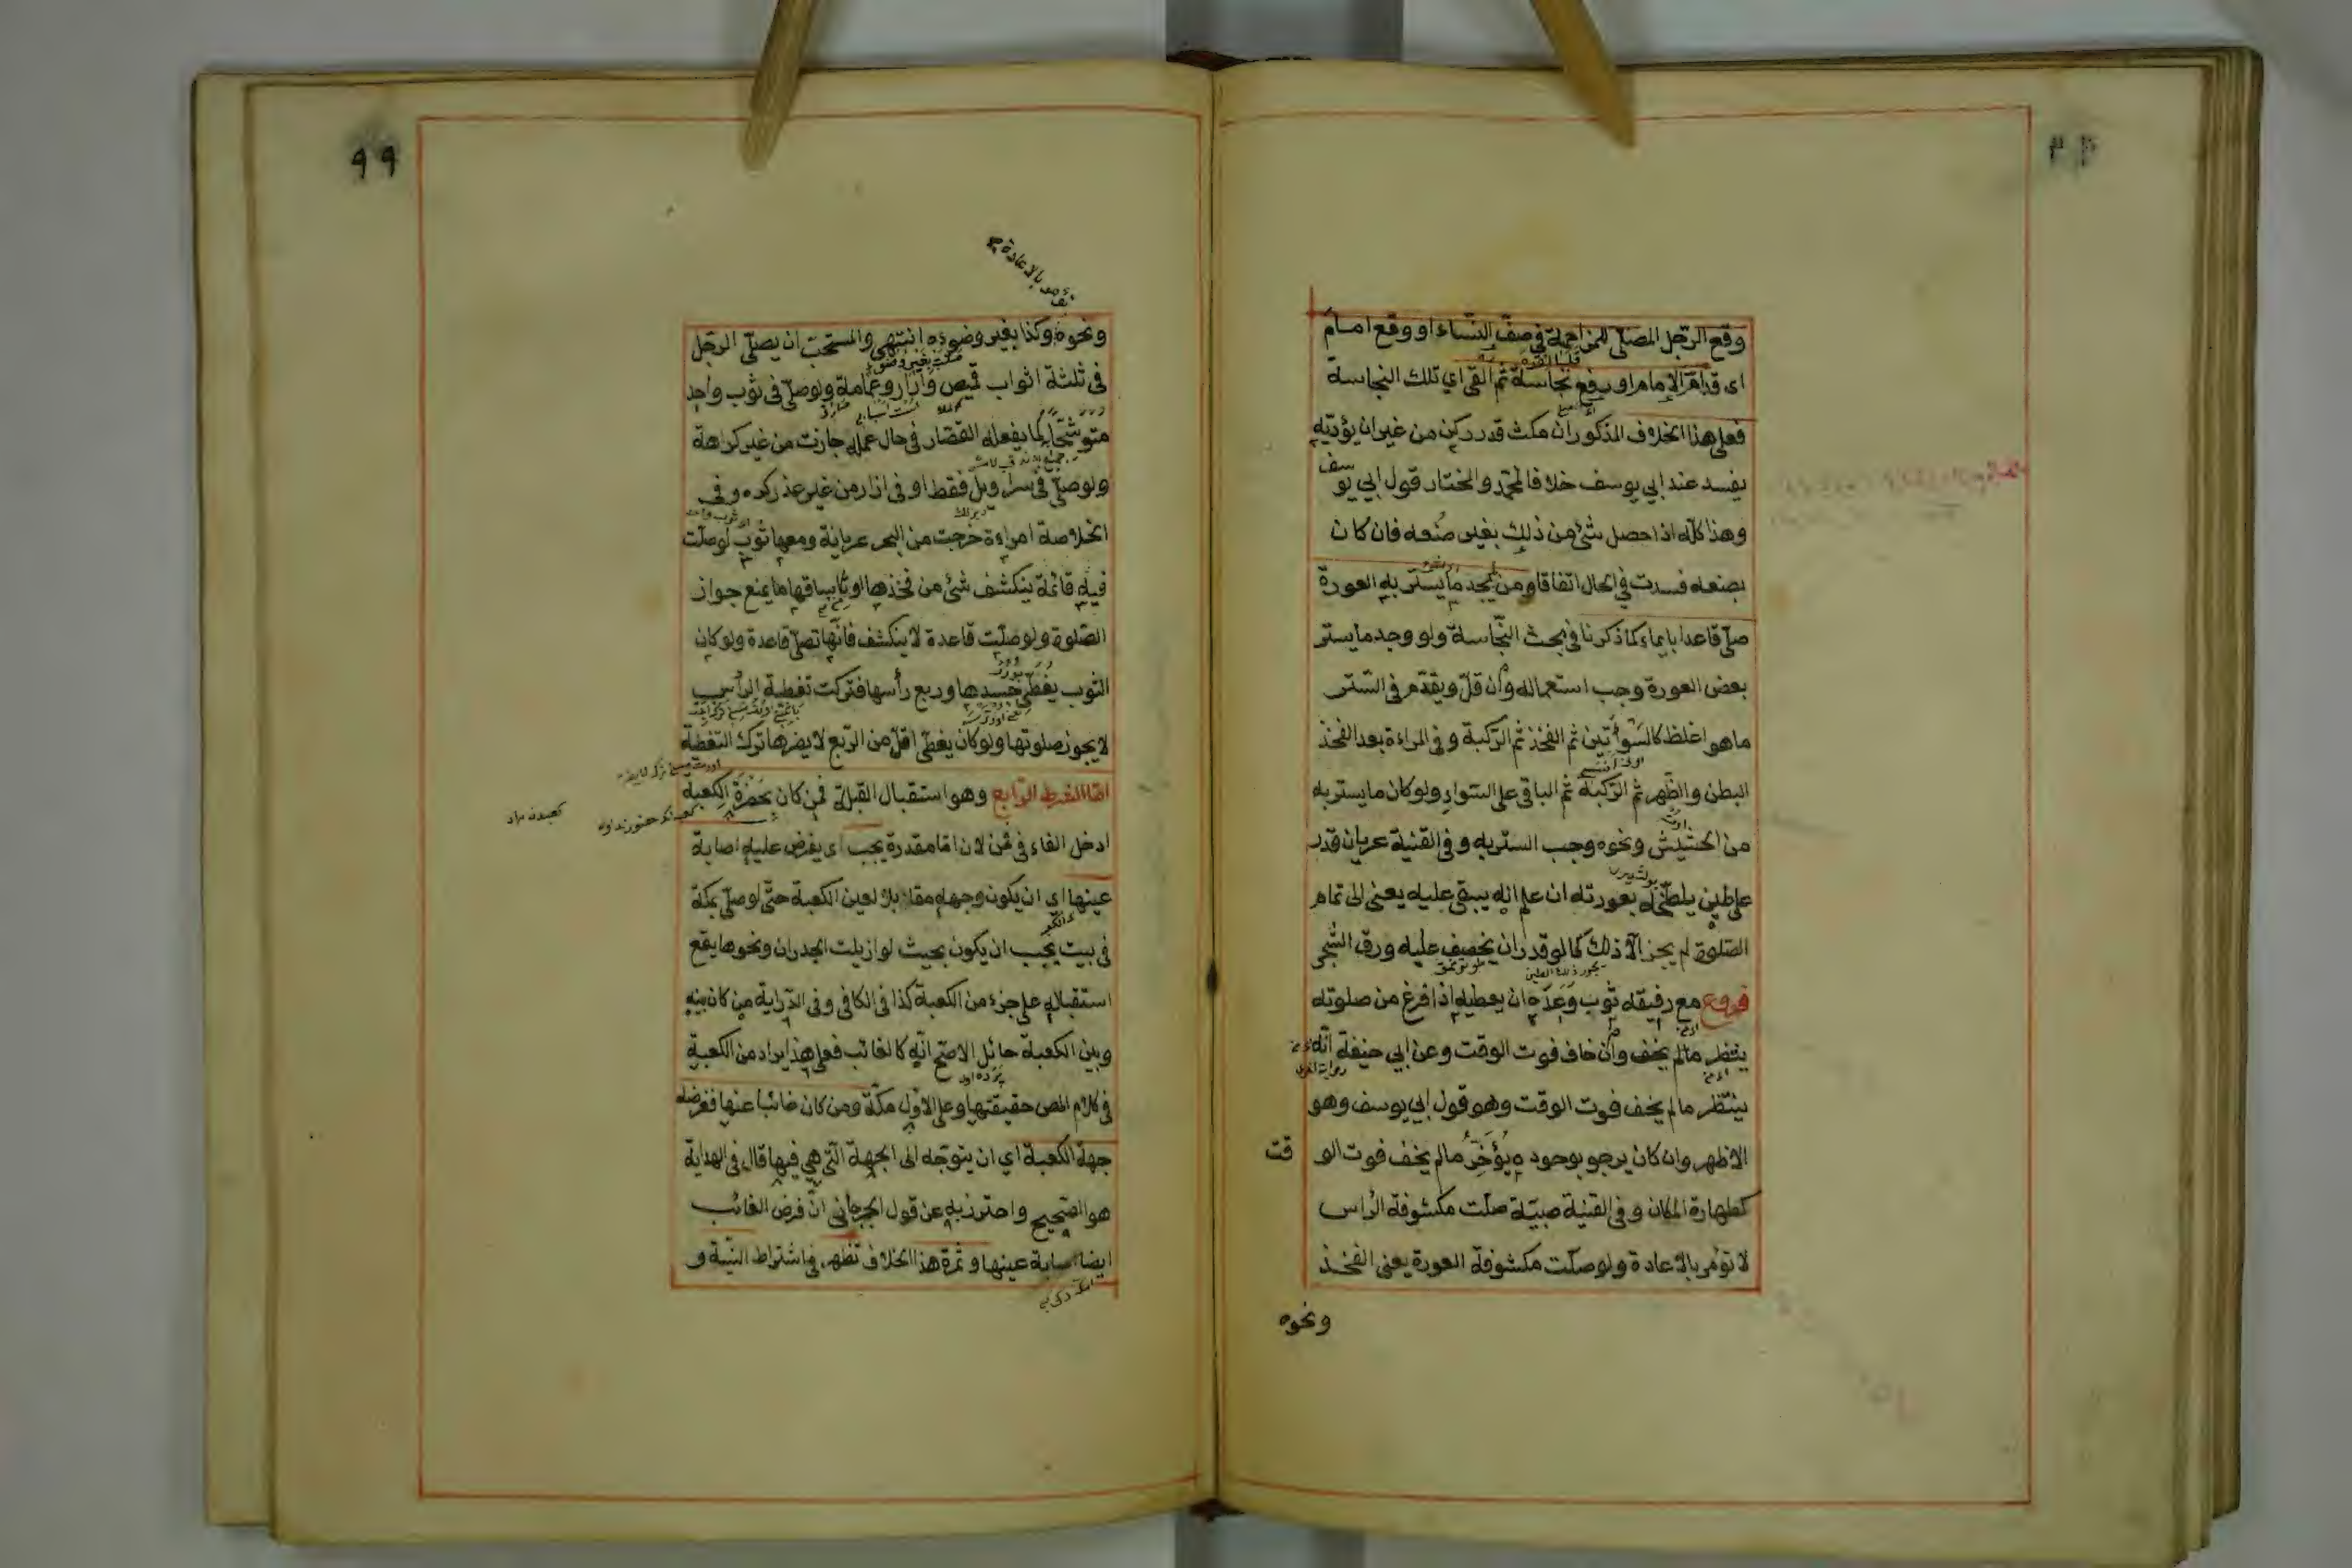 وقع الرّجل المصلّى للمزاحمة فى صفّ النّساء او وقع امام
اى قدّام الإمام او رفع نجاسة ثم القى اي تلك النجاسة
فعلى هذا الخلاف المذكور ان مكث قدر ركن من غير ان يؤدّيه
يفسد عند ابي يوسف خلافا لمحمّد والمختار قول ابي يوسف
وهذا كلّه اذا حصل شئ من ذلك بغير صُنعه فان كان
بصنعه فسدت في الحال اتفاقا ومن لم يجد ما يستر به العورة
صلّى قاعدا بايماء كما ذكرنا فى بحث النّجاسة ولو وجد ما يستر
بعض العورة وجب استعماله وان قلّ ويقدّم فى السّتر
ما هو اغلظ كالسّوأتين ثم الفخذ ثم الرّكبة وفى المراءة بعد الفخذ
البطن والظّهر ثم الرّكبة ثم الباقى على السّواء ولو كان ما يستر به
من الحشيش ونحوه وجب الستر به وفى القنية عريان قدر
على طين يلطّخ به عورته ان علم انّه يبقى عليه يعنى الى تمام
الصّلوة لم يجز الّا ذلك كما لو قدر ان يخصف عليه ورق الشّجر
فروع مع رفيقه ثوب وَعَدَه ان يعطيه اذا فرغ من صلوته
ينتظر مالم يخف وان خاف فوت الوقت وعن ابي حنيفة انّه
ينتظر مالم يخف فوت الوقت وهو قول ابي يوسف وهو
الاظهر وان كان يرجو بوجوده يُؤَخِّرُ مالم يخف فوت الوقت
كطهارة المكان وفى القنية صبيّة صلّت مكشوفة الرّاس
لا تؤمر بالاعادة ولو صلّت مكشوفة العورة يعنى الفخذ
ونحوه
٩٩
ونحوه وكذا بغير وضوءه انتهى والمستحبّ ان يصلّى الرّجل
فى ثلثة اثواب قميص وازار وعمامة ولو صلّى فى ثوب واحد
متوشّحا كما يفعله القصّار فى حال عمله جازت من غير كراهة
ولو صلّى فى سراويل فقط او فى ازار من غير عذر كره وفى
الخلاصة امراءة خرجت من البحر عريانة ومعها ثوب لو صلّت
فيه قائمة ينكشف شئ من فخذها او ساقها ما يمنع جواز
الصّلوة ولو صلّت قاعدة لا ينكشف فانّها تصلّى قاعدة ولو كان
الثوب يغطّى جسدها وربع رأسها فتركت تغطية الرأس
لا يجوز صلوتها ولو كان يغطّى اقلّ من الرّبع لا يضرها ترك التغطية
امّا الشرط الرّابع وهو استقبال القبلة فمن كان بحضرة الكعبة
ادخل الفاء فى فمن لان امّا مقدرة يجب اى يفرض عليه اصابة
عينها اي ان يكون وجهه مقابلا لعين الكعبة حتّى لو صلّى بمكّة
فى بيت يجب ان يكون بحيث لو ازيلت الجدران ونحوها يقع
استقباله على جزء من الكعبة كذا فى الكافى وفى الدّراية من كان بينه
وبين الكعبة حائل الاصحّ انّه كالغائب فعلى هذا يراد من الكعبة
فى كلام المص حقيقتها وعلى الاوّل مكّة ومن كان غائبا عنها ففرضه
جهة الكعبة اي ان يتوجّه الى الجهة الّتى هي فيها قال فى الهداية
هو الصّحيح واحترز به عن قول الجرجانى انّ فرض الغائب
ايضا اصابة عينها وثمرة هذا الخلاف تظهر فى اشتراط النيّة و